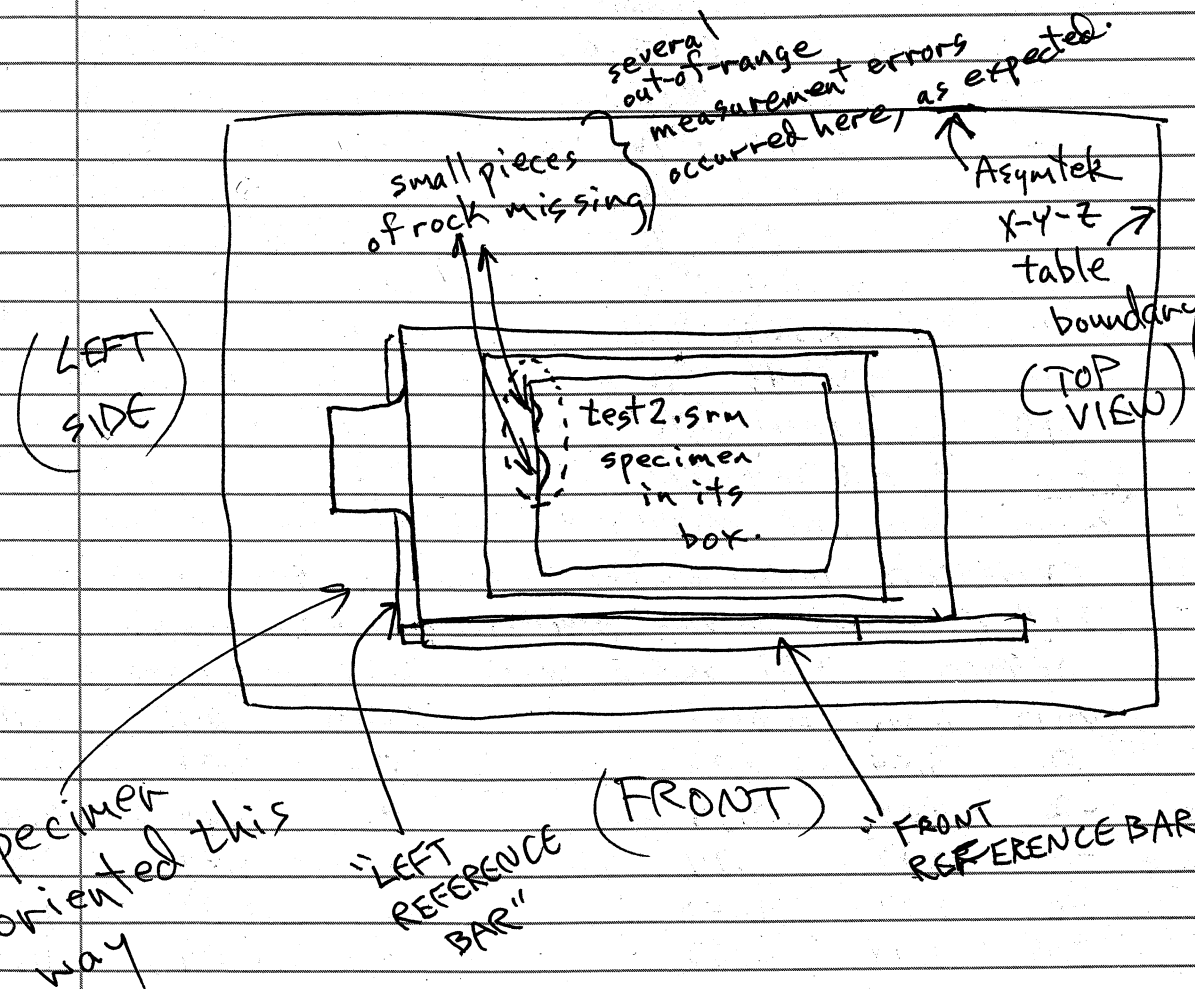 several
out-of-range
measurement errors
occurred here, as expected.
small pieces
of rock missing
Asymtek
X-Y-Z
table
boundary
(TOP
VIEW)
(LEFT
SIDE)
test2.srm
specimen
in its
box.
specimen
oriented this
way
"LEFT
REFERENCE
BAR"
(FRONT)
"FRONT
REFERENCE BAR